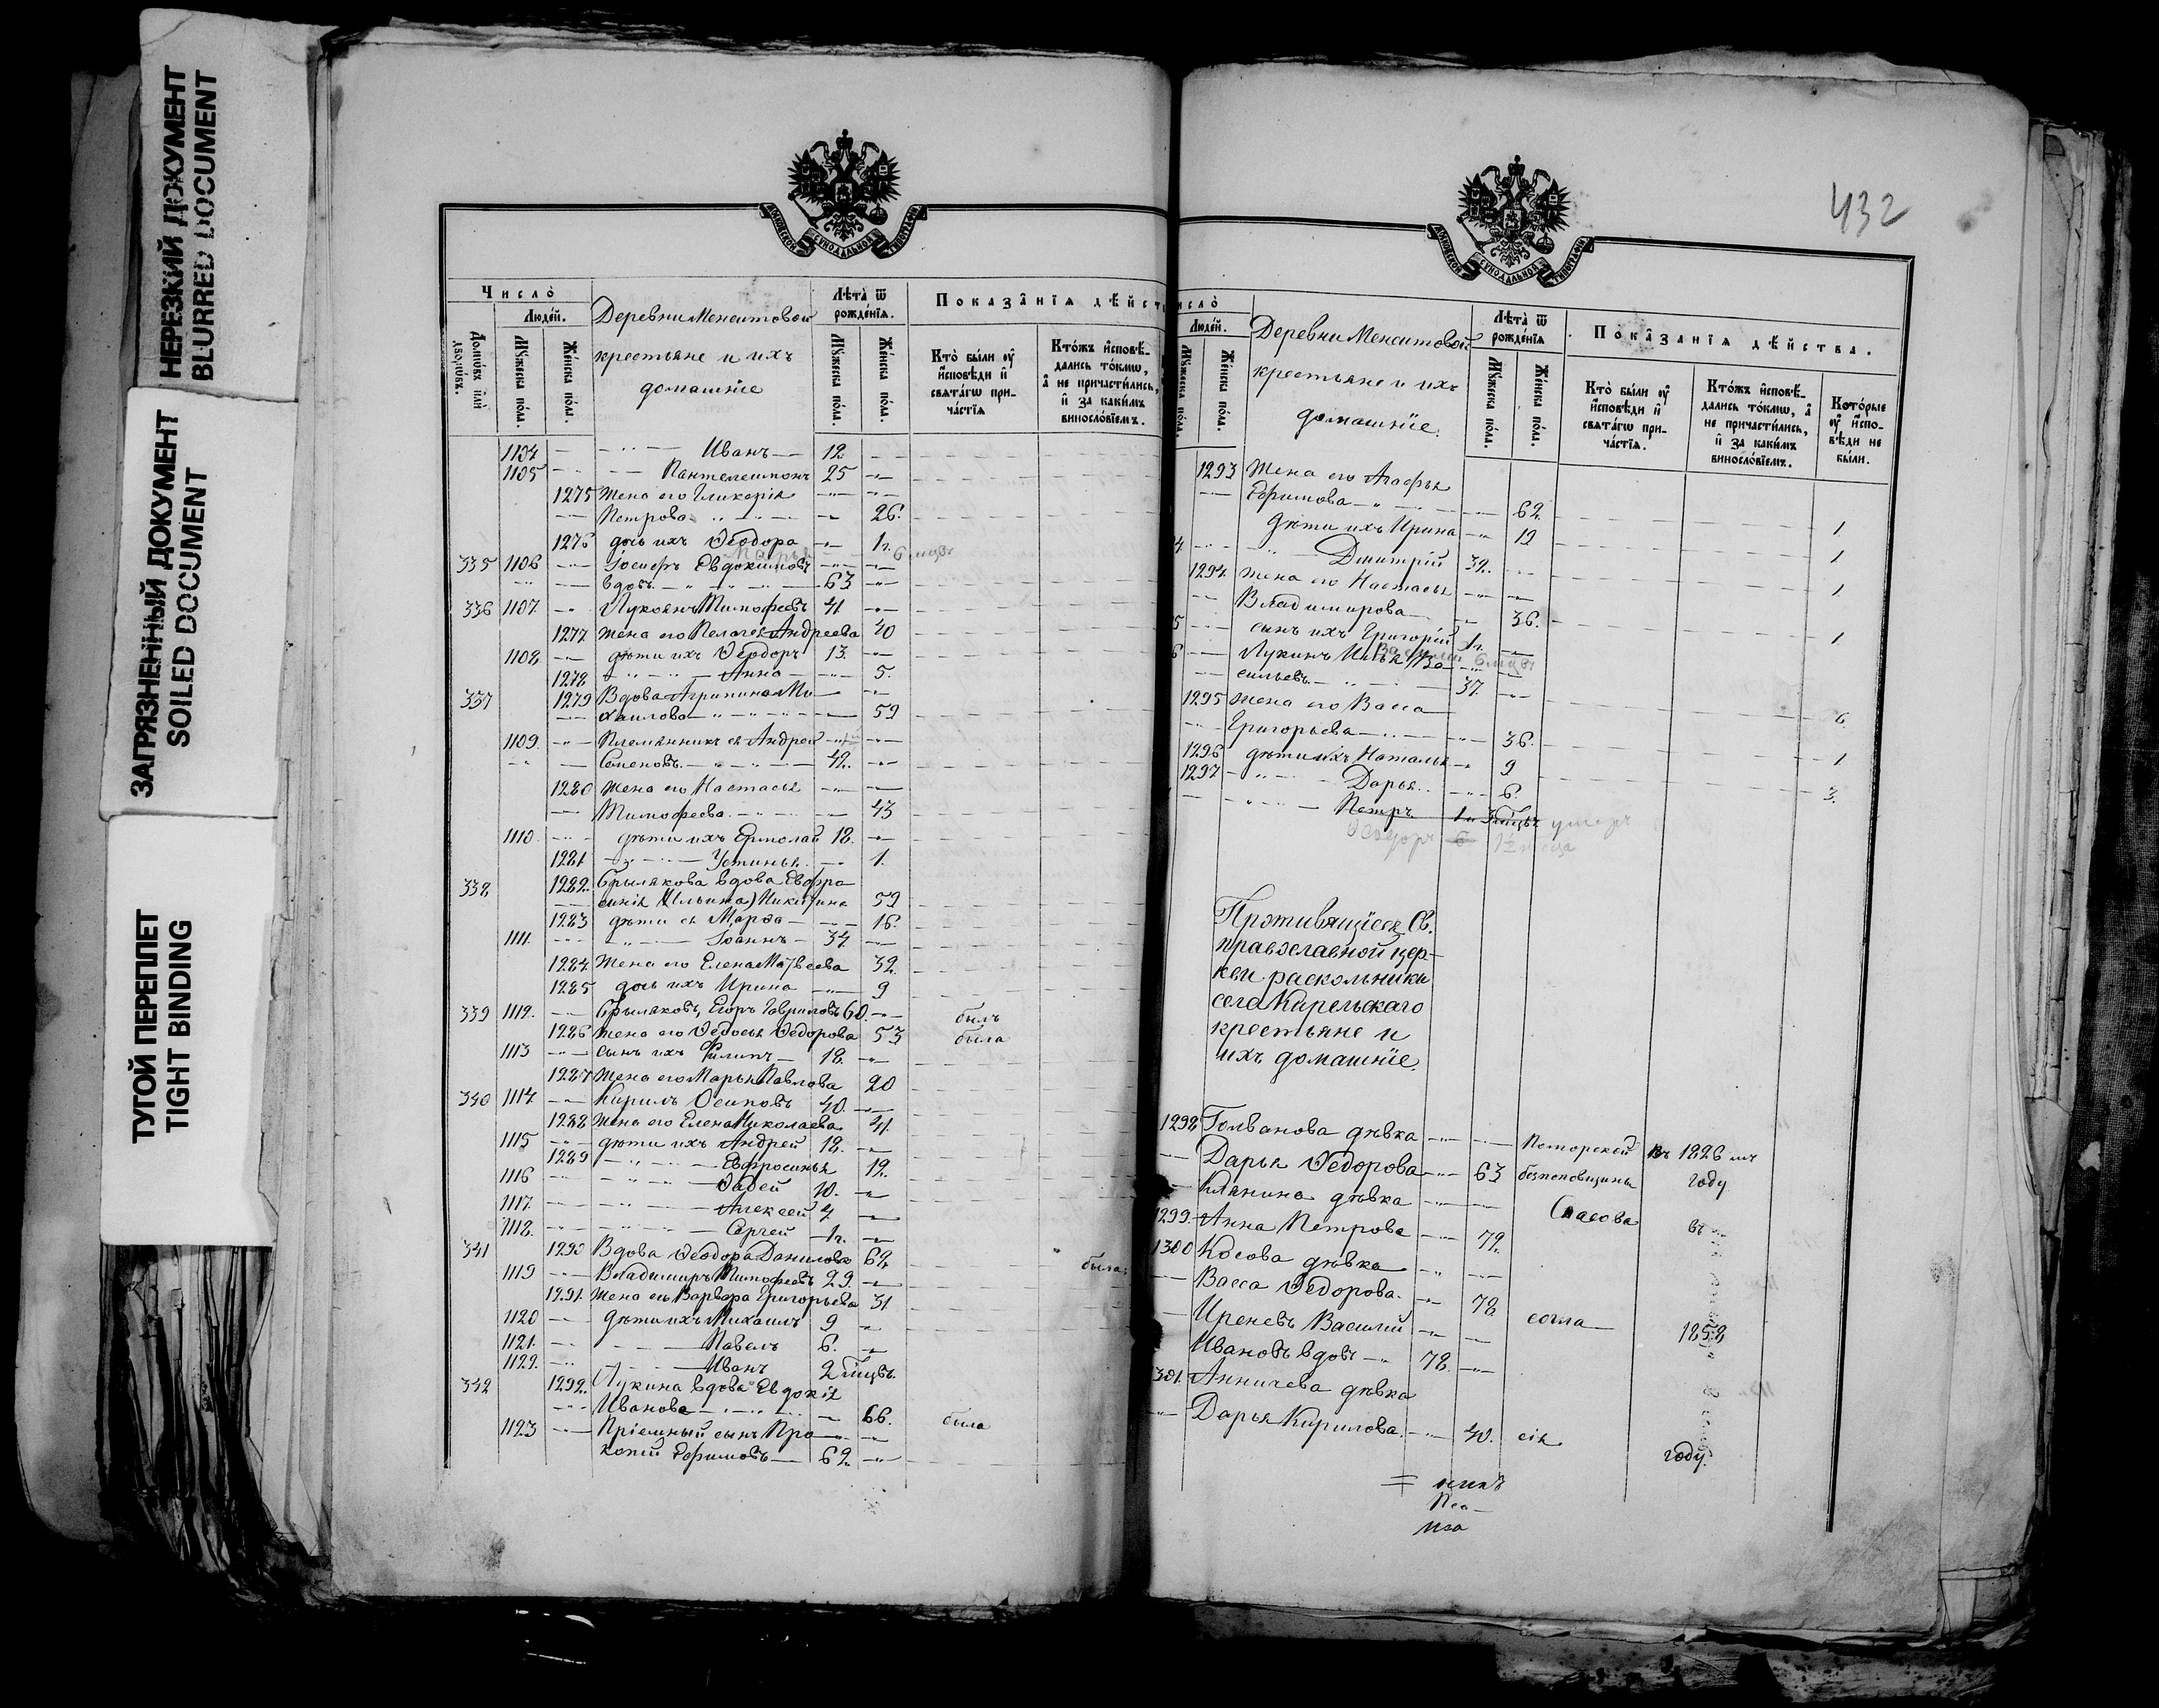 НЕРЕЗКИЙ ДОКУМЕНТ
BLURRED DOCUMENT
ЗАГРЯЗНЕННЫЙ ДОКУМЕНТ
SOILED DOCUMENT
ТУГОЙ ПЕРЕПЛЕТ
TIGHT BINDING
Число
Людей.
Деревни Менситовой
крестьяне и ихъ
домашніе
Лѣта ѿ рожденія.
Показанія дѣйст
Мꙋжеска пола.
Женска пола.
Мꙋжеска пола.
Женска пола.
Кто были ᲂу҆ исповѣди и свѧтагѡ причастїѧ
Ктожъ исповѣдались токмѡ, а не причастились, и за какимъ винословїемъ.
1104 Иванъ 12
1105 Пантелеимонъ 25
1275 Жена его Гликерія
Петрова 26.
1276 дочь ихъ Ѳеодора 1 г.
335 1106 Іосифъ Евдокимовъ
вдовъ 63
336 1107 Лукоянъ Тимофеевъ 41
1277 Жена его Пелагея Андреева 40
1108 дѣти ихъ Ѳеодоръ 13.
1278 Анна 5.
337 1279 Вдова Агрипина Ми
хаилова 59
1109. Племянникъ ея Андрей
Семеновъ 42.
1280 Жена его Настасья
Тимофеева 43
1110. дѣти ихъ Ермолай 18.
1281 Устинья 1.
338 1282. Брылякова вдова Евфро
синія (Ильина) Никитина 59
1283 дѣти ея Марѳа 16.
1111. Іоаннъ 34
1284. Жена его Елена Матвеева 32.
1285 дочь ихъ Ирина 9
339 1112. Брыляковъ, Егоръ Гавриловъ 60. былъ
1286 Жена его Ѳедосья Ѳедорова 53 была
1113 сынъ ихъ Филипъ 18.
1287 Жена его Марья Павлова 20
340 1114 Кирилъ Осиповъ 40.
1288 Жена его Елена Николаева 41.
1115 дѣти ихъ Андрей 18.
1289 Евфросинья 12.
1116 Ѳадей 10.
1117. Алексей 4
1118. Сергей 1 г.
341 1290 Вдова Ѳеодора Данилова 62 была
1119 Владимиръ Тимофеевъ 29.
1291. Жена его Варвара Григорьева 31
1120 дѣти ихъ Михаилъ 9
1121. Павелъ 6.
1122. Иванъ 2 мѣцъ.
342 1292. Лукина вдова Евдокія
Иванова 66. была
1123 Пріемный сынъ Про
копій Ефимовъ 62
432
исло
Людей.
Деревни Менситовой
крестьяне и ихъ
домашніе.
Лѣта ѿ рожденія
Показанія дѣйства.
Женска пола.
Мꙋжеска пола.
Женска пола.
Кто были ᲂу҆ исповѣди и свѧтагѡ причастїѧ.
Ктожъ исповѣдались токмѡ, а не причастились, и за какимъ винословїемъ.
Которые ᲂу҆ исповѣди не были.
1293 Жена его Агафья
Ефимова 62. 1
дѣти ихъ Ирина 19 1
Дмитрій 32. 1
1294. Жена его Настасья
Владимирова 36. 1
сынъ ихъ Григорій 1 г.
Лукинъ Илья Ва
сильевъ 37. 6
1295 Жена его Васса
Григорьева 36. 1
1296 дѣти ихъ Наталья 9 3.
1297 Дарья 6.
Петръ
Противящіеся Св.
православной цер-
кви раскольники
села Кирельскаго
крестьяне и
ихъ домашніе.
1298 Голванова дѣвка Поморской въ 1826 мъ
Дарья Ѳедорова 63 безпоповщины году
дѣвка Спасова
1299. Анна Петрова 79. въ
1300 Косова дѣвка
Васса Ѳедорова 78 согла 1858
Иреневъ Василій
Ивановъ вдовъ 78.
301. Анничева дѣвка
Дарья Кирилова 40. сія году.